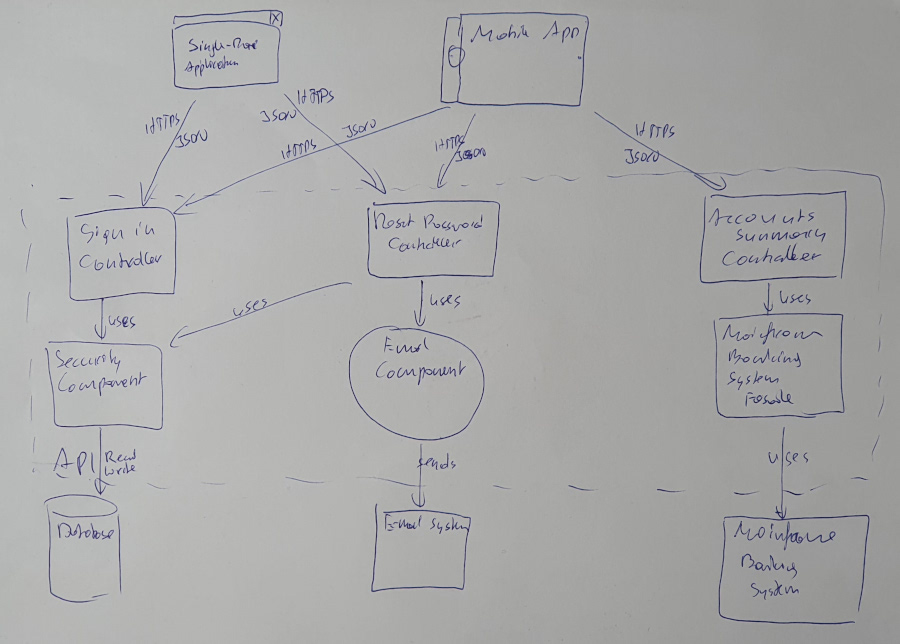 X
Single-Page
Application
Mobile App
HTTPS
JSON
HTTPS
JSON
HTTPS
JSON
HTTPS
JSON
HTTPS
JSON
Sign in
Controller
Reset Password
Controller
Accounts
Summary
Controller
uses
uses
uses
uses
Security
Component
E-mail
Component
Mainframe
Banking
System
Facade
API
Read
Write
sends
uses
Database
E-mail System
Mainframe
Banking
System